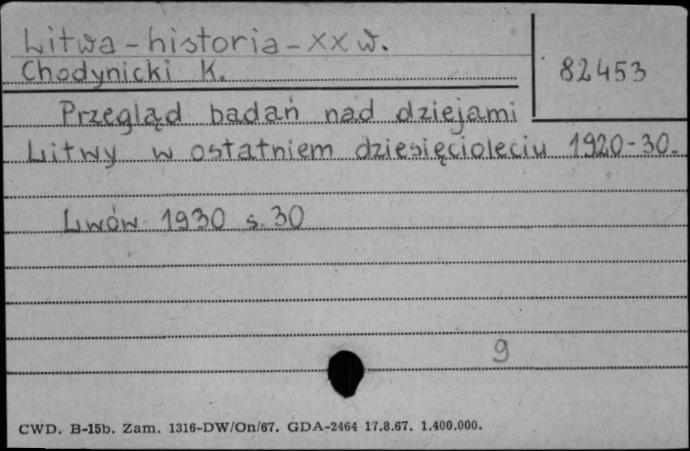 Litwa - historia - XX w.
Chodynicki K.
82453
Przegląd badań nad dziejami
Litwy w ostatniem dziesięcioleciu 1920-30.
Lwów 1930 s. 30
9
CWD. B-15b. Zam. 1316-DW/On/67. GDA-2464 17.8.67. 1.400.000.